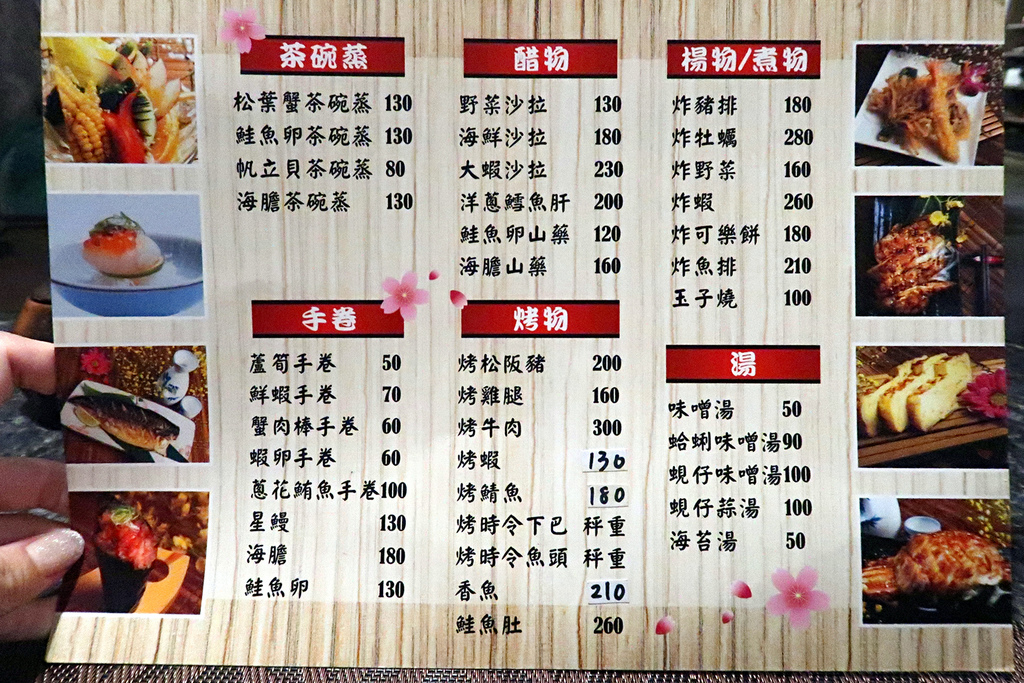 茶碗蒸
松葉蟹茶碗蒸 130
鮭魚卵茶碗蒸 130
帆立貝茶碗蒸 80
海膽茶碗蒸 130
手卷
蘆筍手卷 50
鮮蝦手卷 70
蟹肉棒手卷 60
蝦卵手卷 60
蔥花鮪魚手卷 100
星鰻 130
海膽 180
鮭魚卵 130
醋物
野菜沙拉 130
海鮮沙拉 180
大蝦沙拉 230
洋蔥鱈魚肝 200
鮭魚卵山藥 120
海膽山藥 160
烤物
烤松阪豬 200
烤雞腿 160
烤牛肉 300
烤蝦 130
烤鯖魚 180
烤時令下巴 秤重
烤時令魚頭 秤重
香魚 210
鮭魚肚 260
楊物/煮物
炸豬排 180
炸牡蠣 280
炸野菜 160
炸蝦 260
炸可樂餅 180
炸魚排 210
玉子燒 100
湯
味噌湯 50
蛤蜊味噌湯 90
蜆仔味噌湯 100
蜆仔蒜湯 100
海苔湯 50